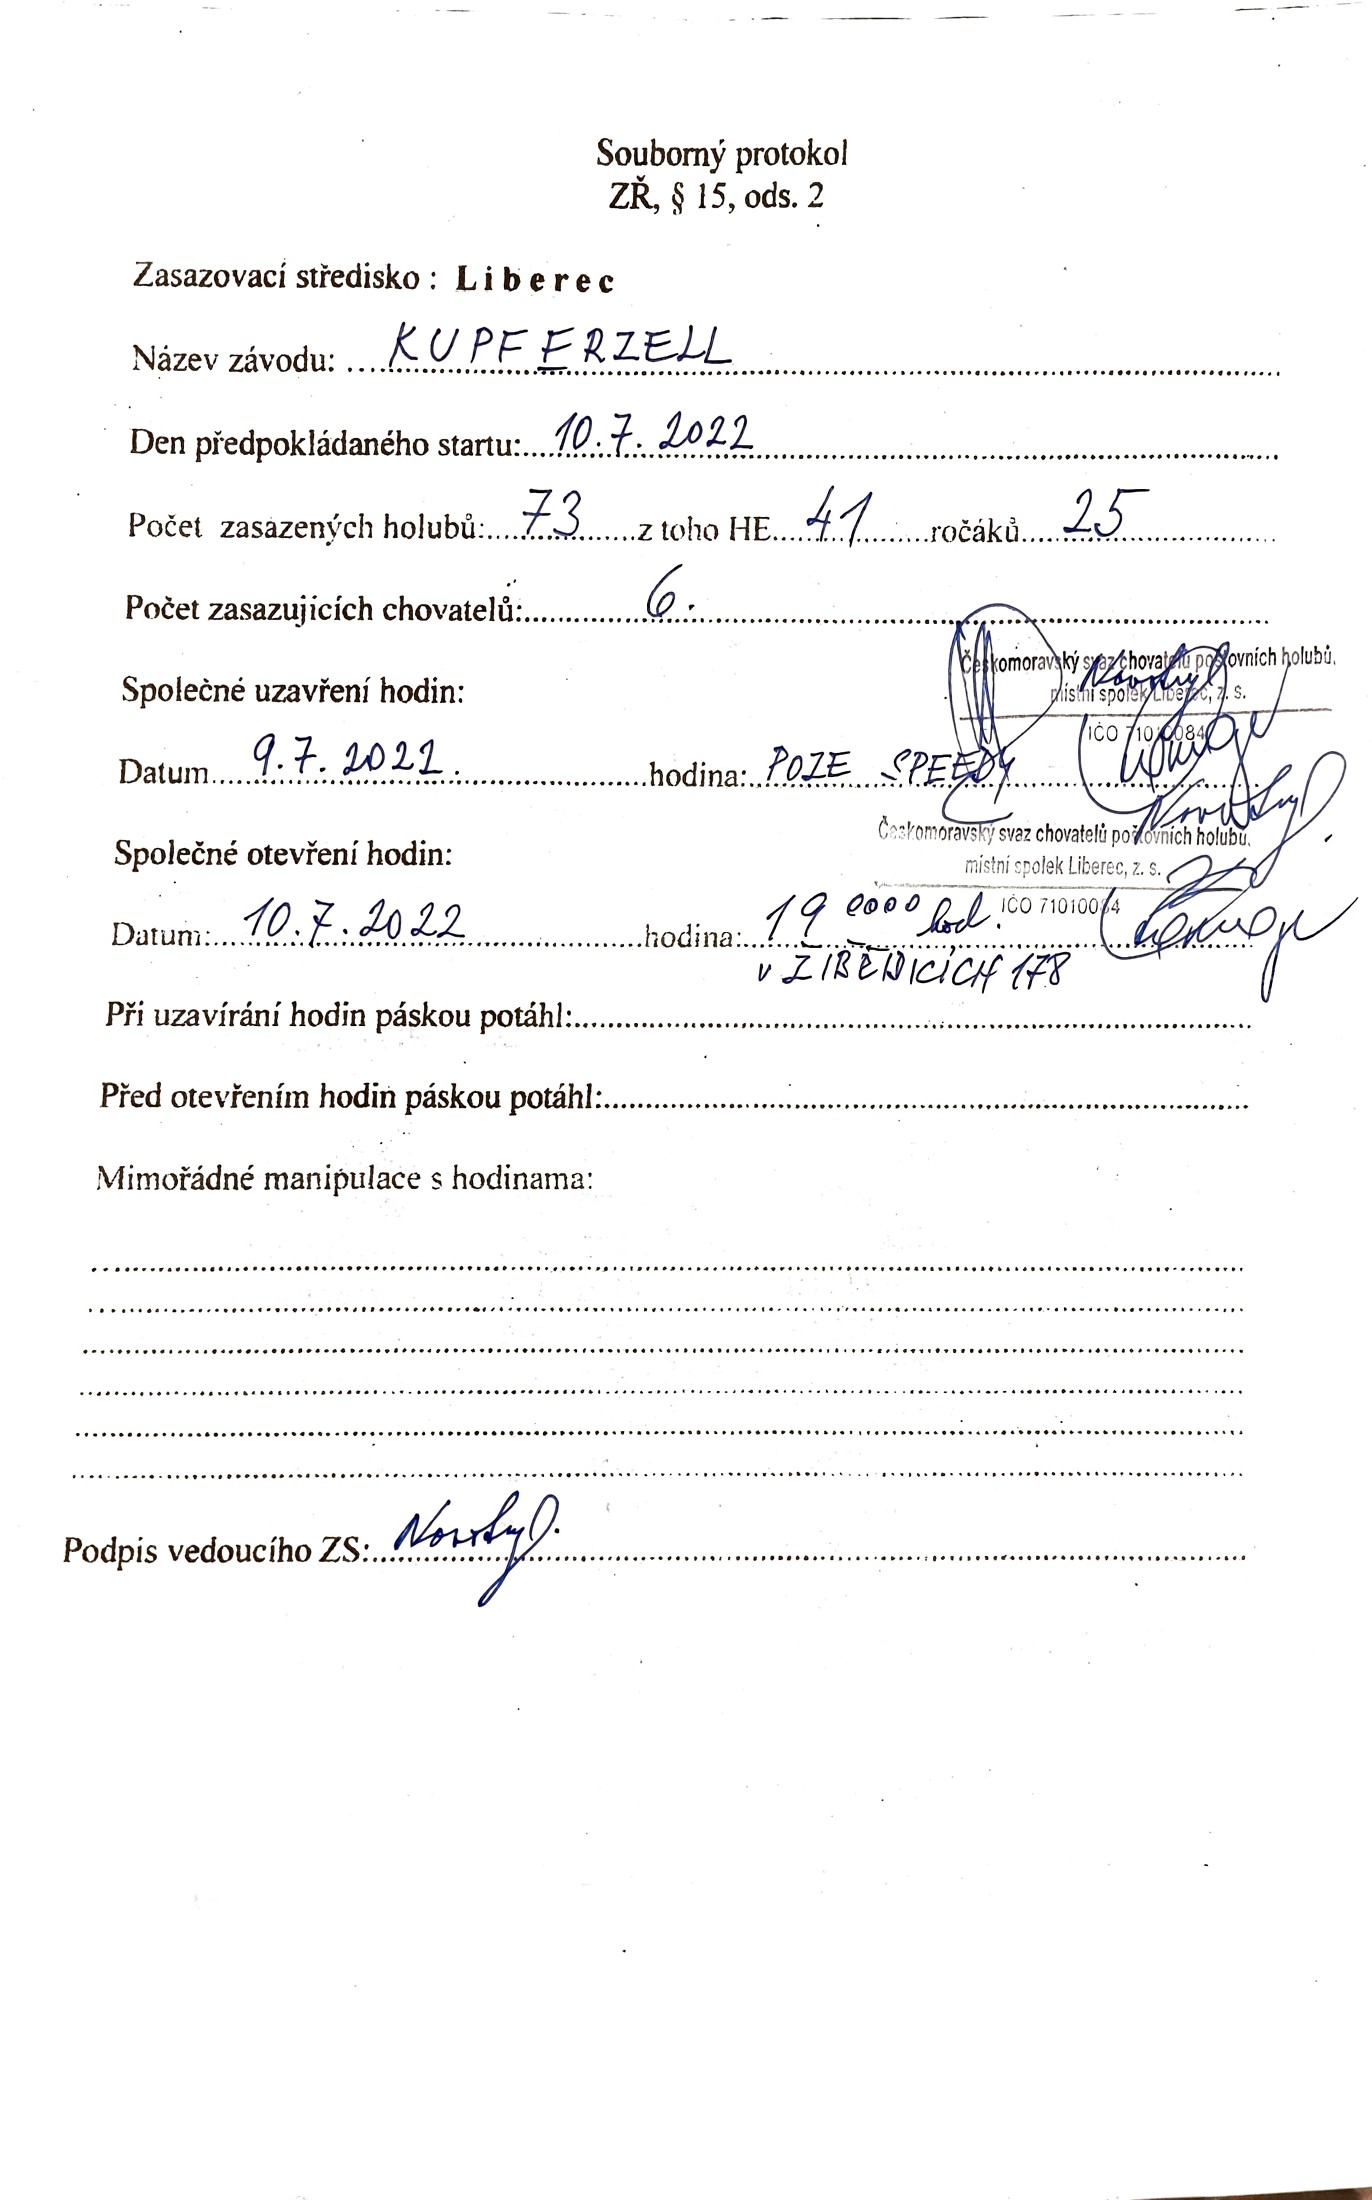 Souborný protokol
ZŘ, § 15, ods. 2
Zasazovací středisko : Liberec
Název závodu: KUPFERZELL
Den předpokládaného startu: 10.7.2022
Počet zasazených holubů: 73 z toho HE 41 ročáků 25
Počet zasazujících chovatelů: 6.
Českomoravský svaz chovatelů poštovních holubů,
místní spolek Liberec, z. s.
IČO 71010084
Společné uzavření hodin:
Datum 9.7.2022. hodina: POZE SPEEDY
Českomoravský svaz chovatelů poštovních holubů,
místní spolek Liberec, z. s.
IČO 71010084
Společné otevření hodin:
Datum: 10.7.2022 hodina: 19 0000 hod.
v ZIBĚDICÍCH 178
Při uzavírání hodin páskou potáhl:
Před otevřením hodin páskou potáhl:
Mimořádné manipulace s hodinama:
Podpis vedoucího ZS: